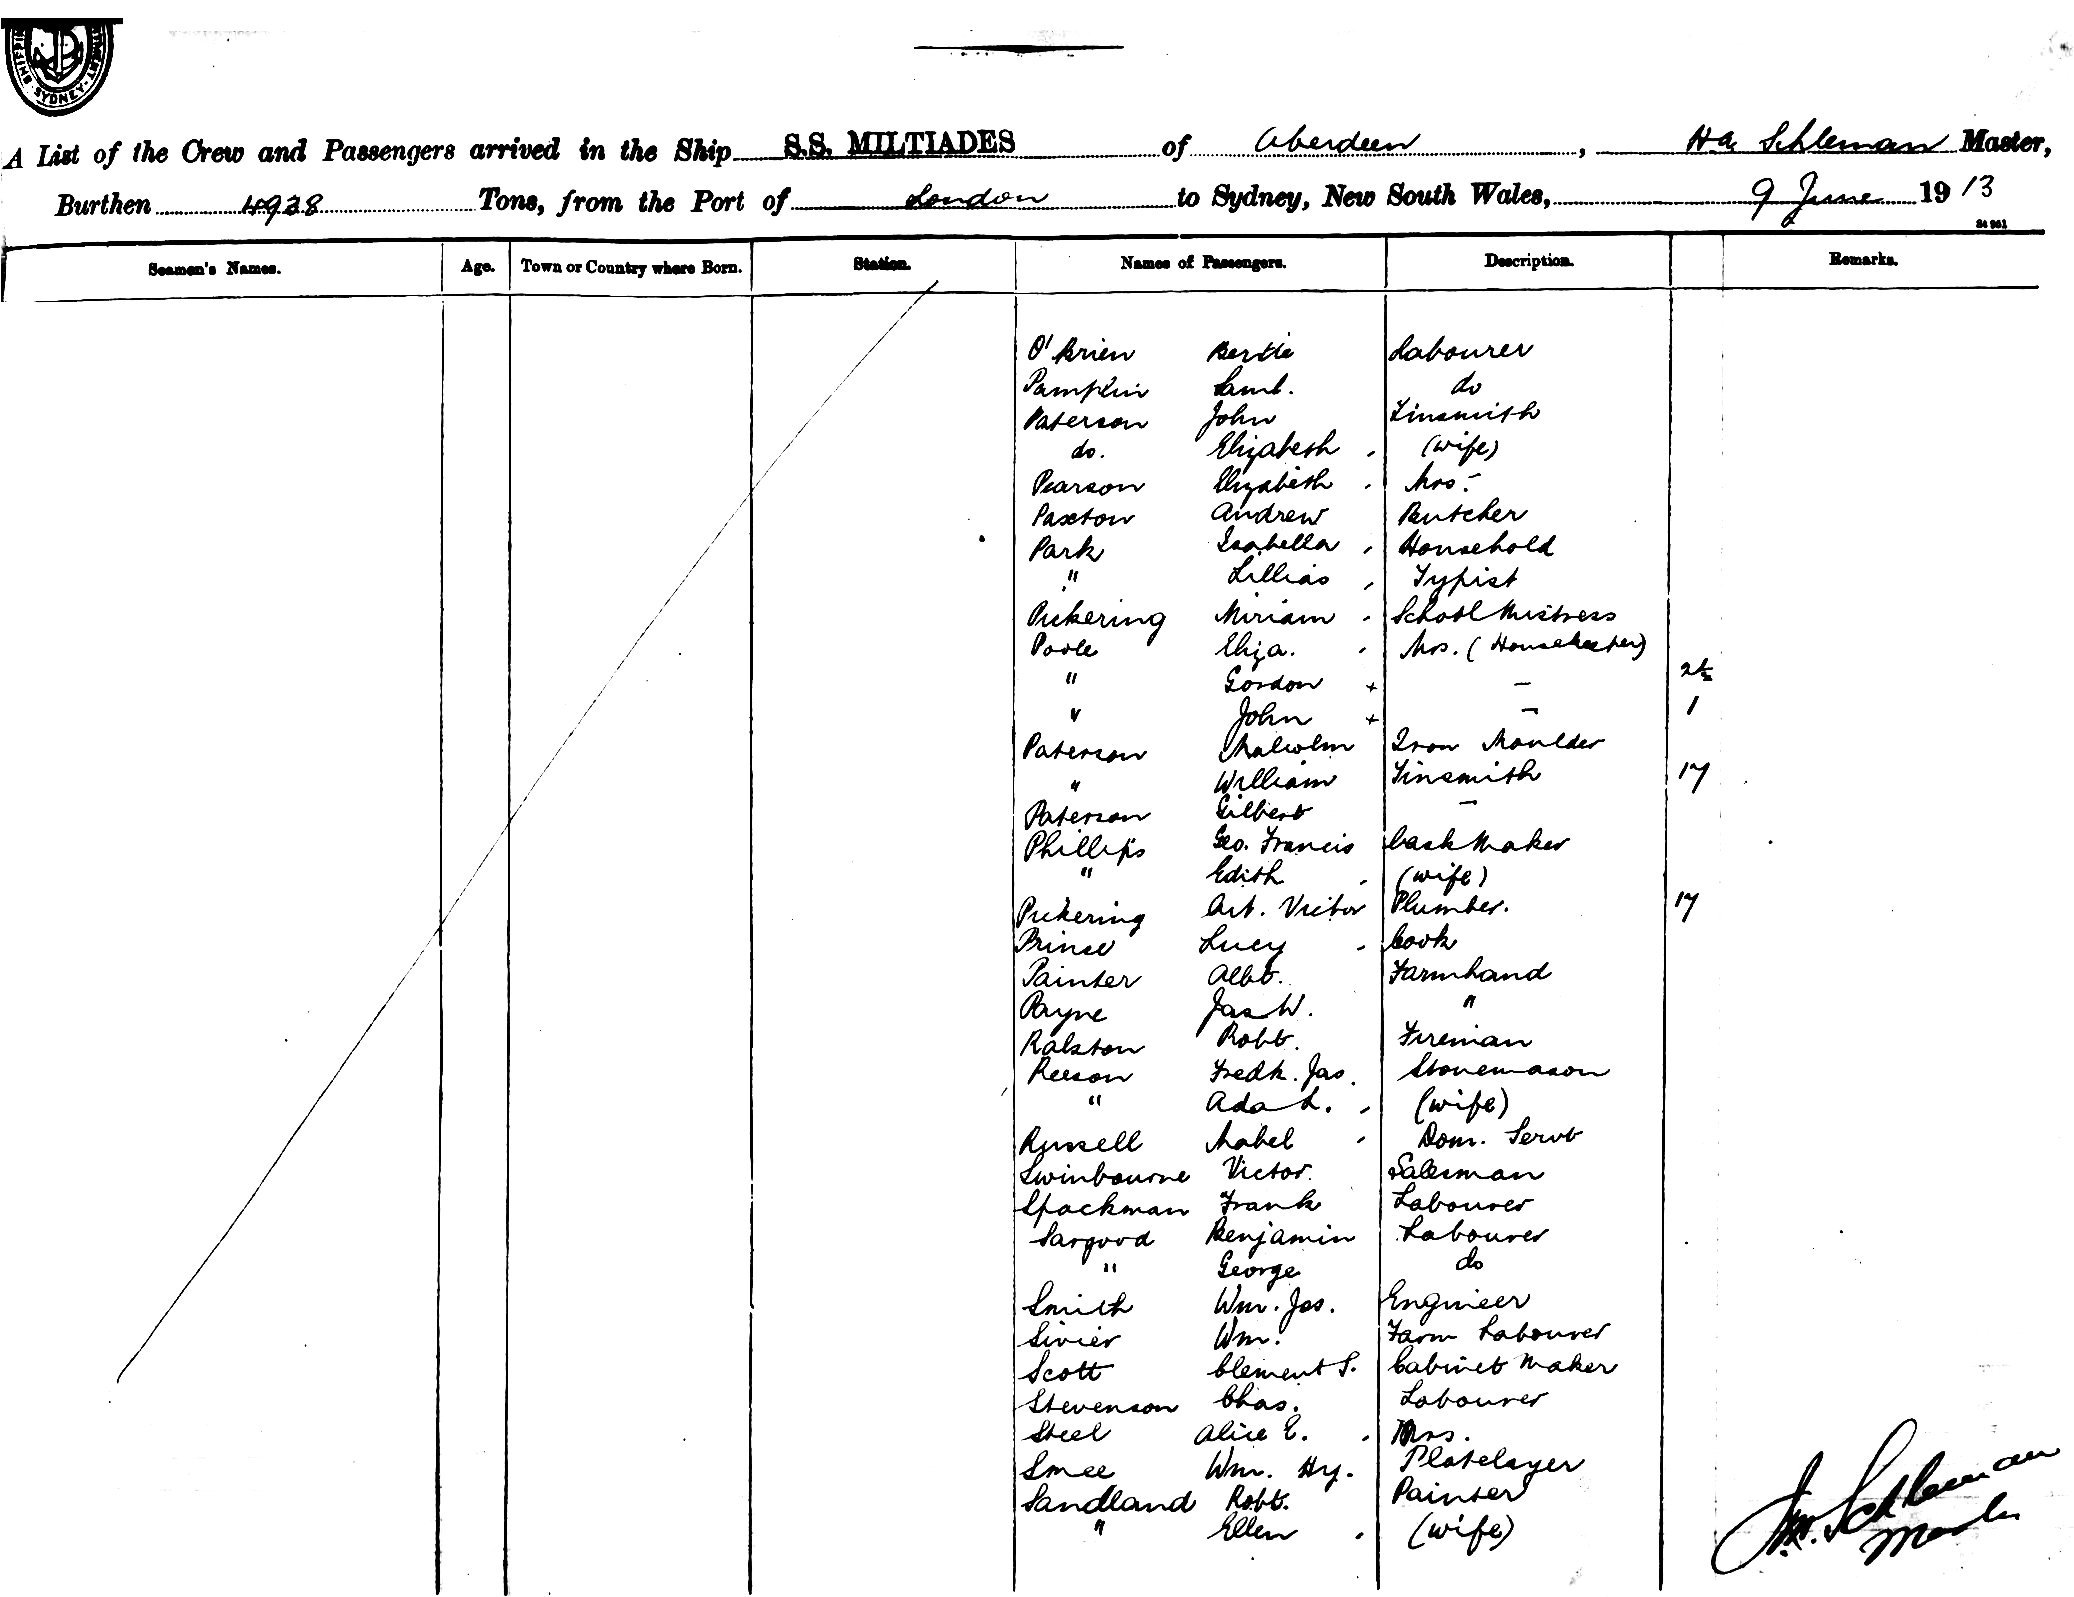 SYDNEY
A List of the Crew and Passengers arrived in the Ship S.S. MILTIADES of Aberdeen, Schleman Master,
Burthen 4928 Tons, from the Port of London to Sydney, New South Wales, 9 June 1913
Seamen's Names. Age. Town or Country where Born. Station. Names of Passengers. Description. Remarks.
O'Brien Bertie Labourer
Pamplin Saml. do
Paterson John Tinsmith
do. Elizabeth (wife)
Pearson Elizabeth Mrs.
Paxton Andrew Butcher
Park Isabella Household
" Lillias Typist
Pickering Miriam School Mistress
Poole Eliza. Mrs. (Housekeeper)
" Gordon + - 2½
" John + - 1
Paterson Malcolm Iron Moulder
" William Tinsmith 17
Paterson Gilbert -
Phillips Geo. Francis Cask Maker
" Edith (wife)
Pickering Art. Victor Plumber. 17
Prince Lucy Cook
Painter Albt. Farmhand
Payne Jas W. "
Ralston Robt. Fireman
Reeson Fredk. Jas. Stonemason
" Ada L. (wife)
Russell Mabel Dom. Servt
Swinbourne Victor. Salesman
Spackman Frank Labourer
Sargood Benjamin Labourer
" George do
Smith Wm. Jas. Engineer
Sivier Wm. Farm Labourer
Scott Clement S. Cabinet Maker
Stevenson Chas. Labourer
Steel Alice E. Mrs.
Smee Wm. Hy. Platelayer
Sandland Robt. Painter
" Ellen (wife)
Schleman
Master